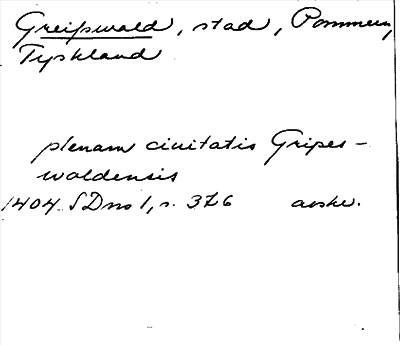 Greifswald, stad, Pommern,
Tyskland
plenam civitatis Gripes-
waldensis
1404 SDns 1, s. 376 avskr.